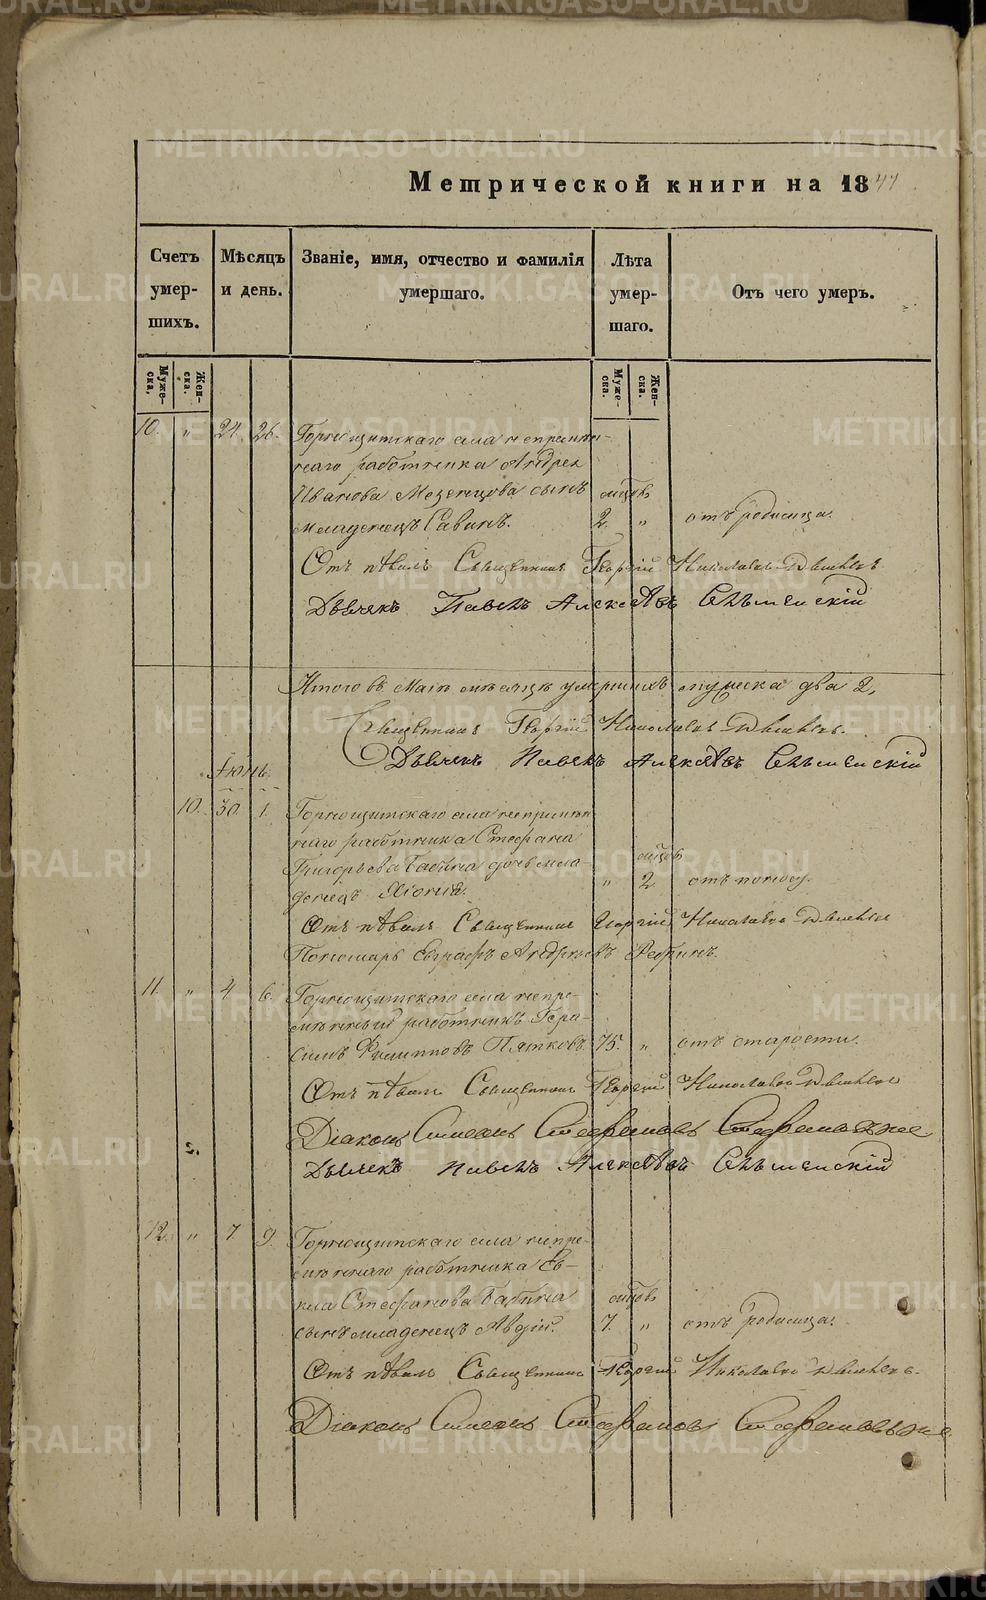 Метрической книги на 1841
Счетъ умер-шихъ.
Мѣсяцъ и день.
Званіе, имя, отчество и фамилія умершаго.
Лѣта умер-шаго.
Отъ чего умеръ.
Муже-ска,
Жен-ска.
Муже-ска.
Жен-ска.
10. " 24. 26. Горнощитскаго села непремѣн-
наго работника Андрея
Иванова Мезенцова сынъ
младенецъ Савинъ. 2. " отъ родимца.
Отпѣвалъ Священникъ Георгій Николаевъ
Дьячекъ Павелъ Алексѣевъ
Итого въ Маіѣ мѣсяцѣ умершихъ мужеска два 2,
Священникъ Георгій Николаевъ
Дьячекъ Павелъ Алексѣевъ
Іюнь.
10. 30. 1. Горнощитскаго села непремѣн
наго работника Стефана
Григорьева Бабина дочь мла-
денецъ Хіонія. " 2 отъ поносу.
Отпѣвалъ Священникъ Георгій Николаевъ
Пономарь Евграфъ Андреевъ
11. " 4 6. Горнощитскаго села непре-
мѣнный работникъ Гера-
симъ Филипповъ Пятковъ. 75. " отъ старости.
Отпѣвалъ Священникъ Георгій Николаевъ
Діаконъ Симеонъ Стефановъ
2.
Дьячекъ Павелъ Алексѣевъ
12. " 7 9. Горнощитскаго села непре-
мѣннаго работника
Стефанова Бабина
сынъ младенецъ Авдій. 7. " отъ родимца.
Отпѣвалъ Священникъ Георгій Николаевъ
Діаконъ Симеонъ Стефановъ
METRIKI.GASO-URAL.RU